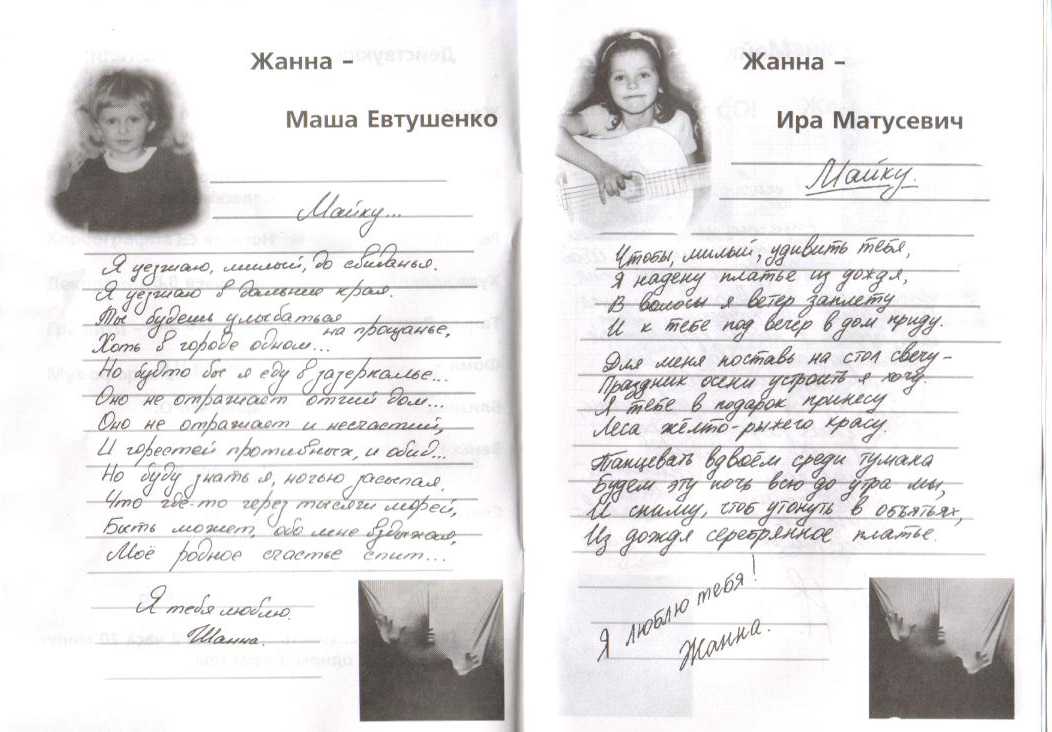 Жанна –
Маша Евтушенко
Майку...
Я уезжаю, милый, до свиданья.
Я уезжаю в дальние края.
Ты будешь улыбаться
на прощанье,
Хоть в городе одном...
Но будто бы я еду в зазеркалье...
Оно не отражает отчий дом...
Оно не отражает и несчастий,
И горестей противных, и обид...
Но буду знать я, ночью засыпая,
Что где-то через тысячи морей,
Быть может, обо мне вздыхая,
Моё родное счастье спит...
Я тебя люблю.
Жанна.
Жанна –
Ира Матусевич
Майку.
Чтобы, милый, удивить тебя,
Я надену платье из дождя,
В волосы я ветер заплету
И к тебе под вечер в дом приду.
Для меня поставь на стол свечу –
Праздник осени устроить я хочу.
Я тебе в подарок принесу
Леса жёлто-рыжего красу.
Танцевать вдвоём среди тумана
Будем эту ночь всю до утра мы,
И сниму, чтоб утонуть в объятьях,
Из дождя серебрянное платье.
Я люблю тебя!
Жанна.